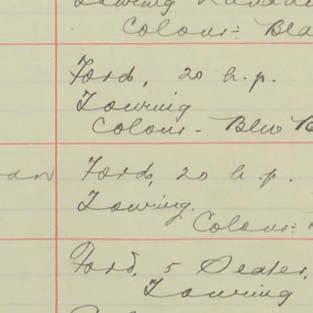 Touring
Colour: Bla
Ford, 20 h.p.
Touring
Colour - Blue B
Ford, 20 h.p.
Touring.
Colour:
Ford, 5 Seater,
Touring